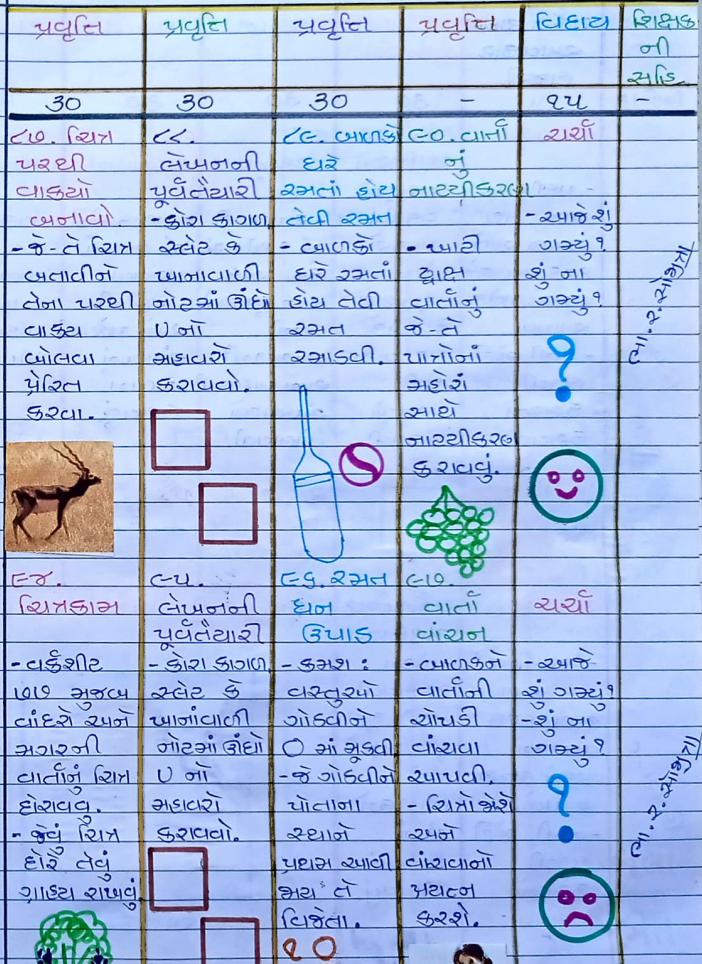 પ્રવૃત્તિ
પ્રવૃત્તિ
પ્રવૃત્તિ
પ્રવૃત્તિ
વિદાય
શિક્ષક
ની
સહિ
30
30
30
-
૧૫
-
૮૭. ચિત્ર
પરથી
વાક્યો
બનાવો.
- જે-તે ચિત્ર
બતાવીને
તેના પરથી
વાક્ય
બોલવા
પ્રેરિત
કરવા.
૮૮.
લેખનની
પૂર્વતૈયારી
- કોરા કાગળ,
સ્લેટ કે
ખાનાવાળી
નોટમાં ઊંધો
U નો
મહાવરો
કરાવવો.
૮૯. બાળકો
ઘરે
રમતાં હોય
તેવી રમત
- બાળકો
ઘરે રમતાં
હોય તેવી
રમત
રમાડવી.
૯૦. વાર્તા
નું
નાટ્યીકરણ
- ખાટી
દ્રાક્ષ
વાર્તાનું
જે-તે
પાત્રોનાં
મહોરાં
સાથે
નાટ્યીકરણ
કરાવવું.
ચર્ચા
- આજે શું
ગમ્યું?
શું ના
ગમ્યું?
?
૯૪.
ચિત્રકામ
- વર્કશીટ
૭૭ મુજબ
વાંદરો અને
મગરની
વાર્તાનું ચિત્ર
દોરાવવુ.
- જેવું ચિત્ર
દોરે તેવું
ગ્રાહ્ય રાખવું.
૯૫.
લેખનની
પૂર્વતૈયારી
- કોરા કાગળ,
સ્લેટ કે
ખાનાંવાળી
નોટમાં ઊંધો
U નો
મહાવરો
કરાવવો.
૯૬. રમત
ધન
ઉપાડ
- ક્રમશ:
વસ્તુઓ
ગોઠવીને
O માં મૂકવી
- જે ગોઠવીને
પોતાના
સ્થાને
પ્રથમ આવી
જાય તે
વિજેતા.
૧૦
૯૭.
વાર્તા
વાંચન
- બાળકને
વાર્તાની
ચોપડી
વાંચવા
આપવી.
- ચિત્રો જોશે
અને
વાંચવાનો
પ્રયત્ન
કરશે.
ચર્ચા
- આજે
શું ગમ્યું?
- શું ના
ગમ્યું?
?